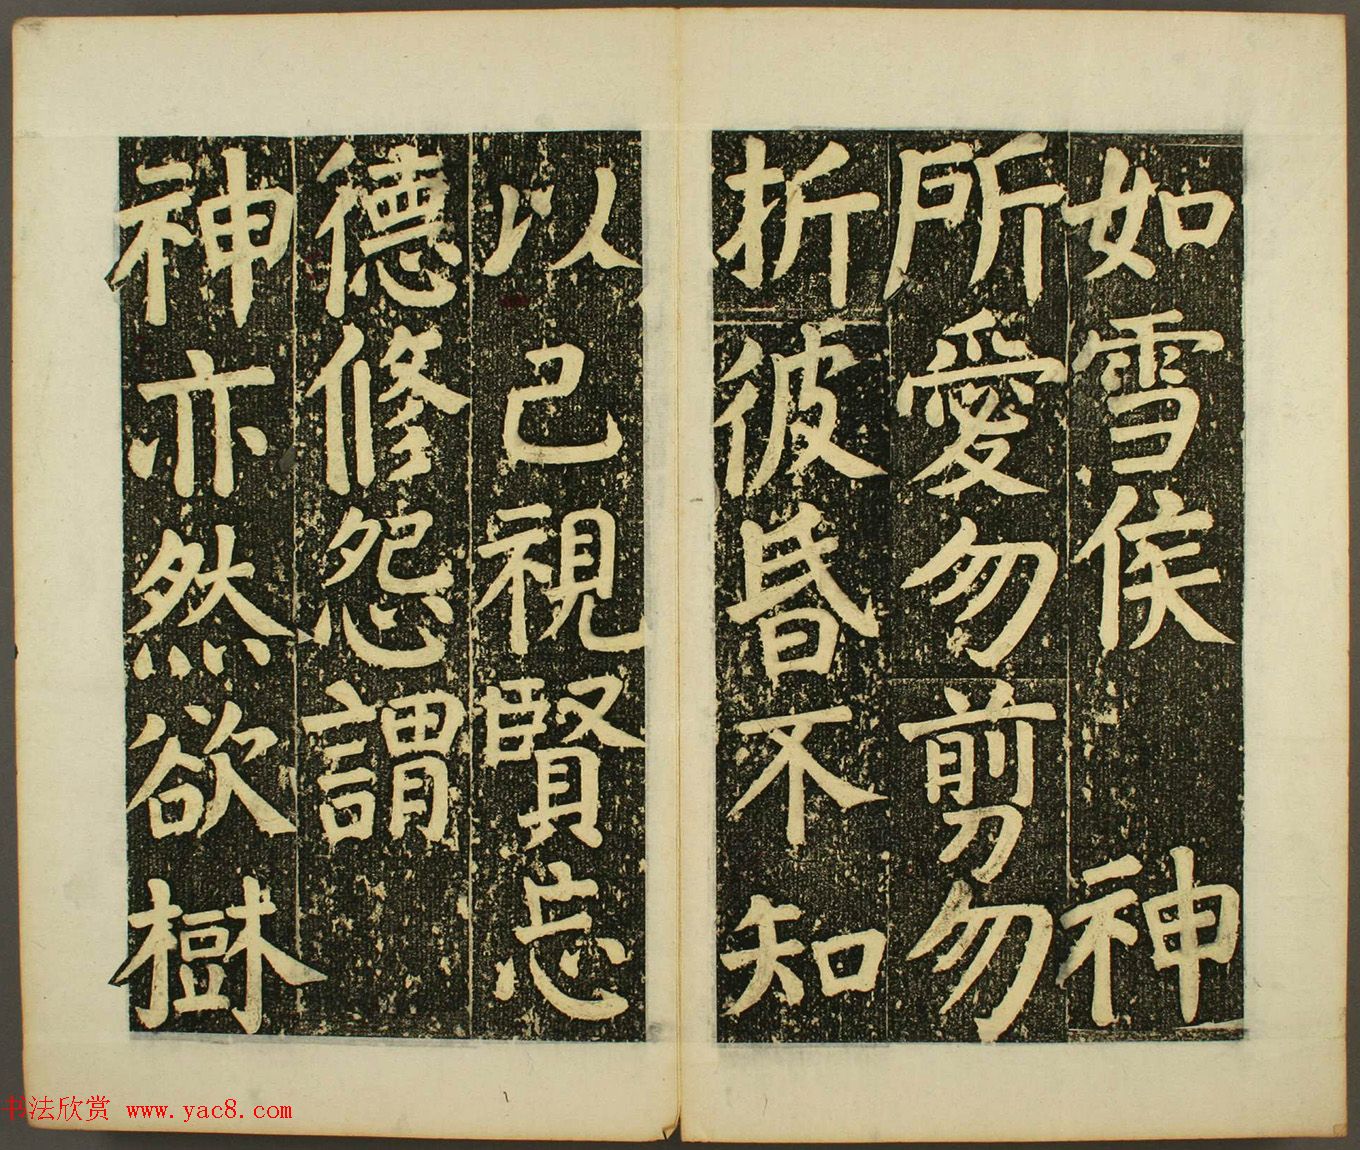 如雪侯神
所愛勿剪勿
折彼昏不知
以己視賢忘
德修怨謂
神亦然欲樹
书法欣赏 www.yac8.com